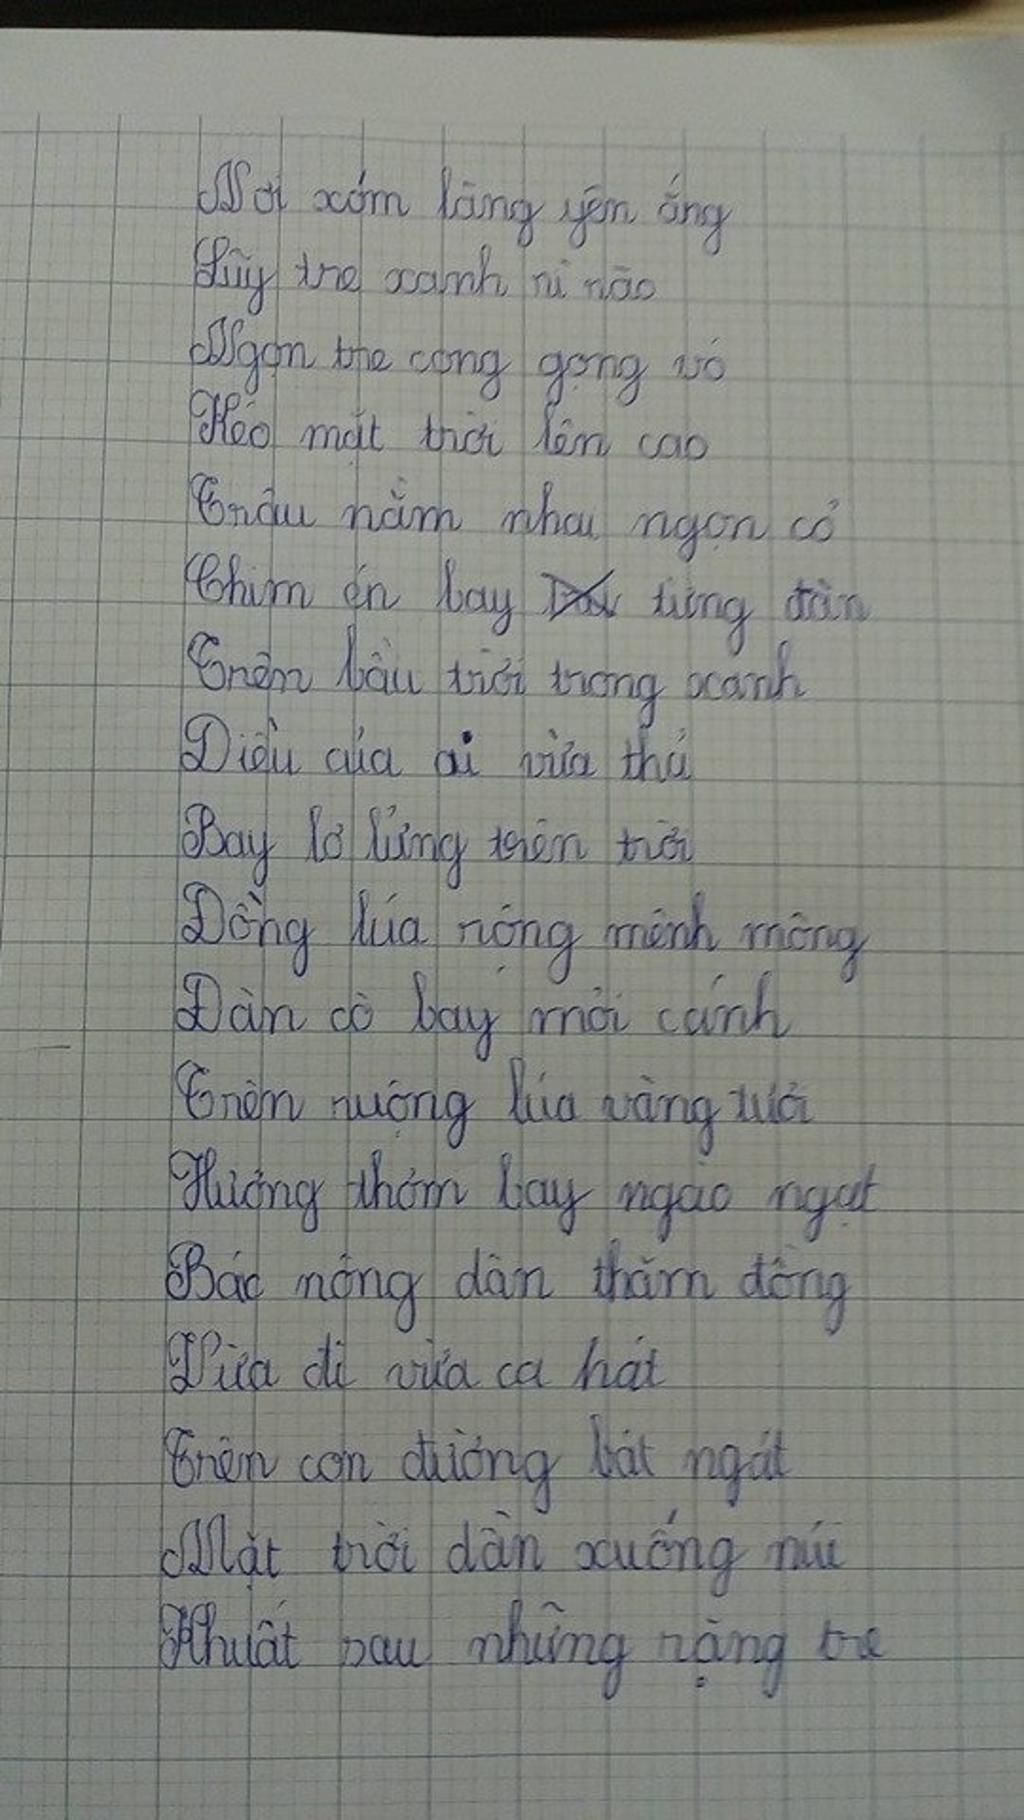 Nơi xóm làng yên ắng
Lũy tre xanh rì rào
Ngọn tre cong gọng vó
Kéo mặt trời lên cao
Trâu nằm nhai ngọn cỏ
Chim én bay từng đàn
Trên bầu trời trong xanh
Diều của ai vừa thả
Bay lơ lửng trên trời
Đồng lúa rộng mênh mông
Đàn cò bay mỏi cánh
Trên ruộng lúa vàng tươi
Hương thơm bay ngào ngạt
Bác nông dân thăm đồng
Vừa đi vừa ca hát
Trên con đường bát ngát
Mặt trời dần xuống núi
Khuất sau những rặng tre